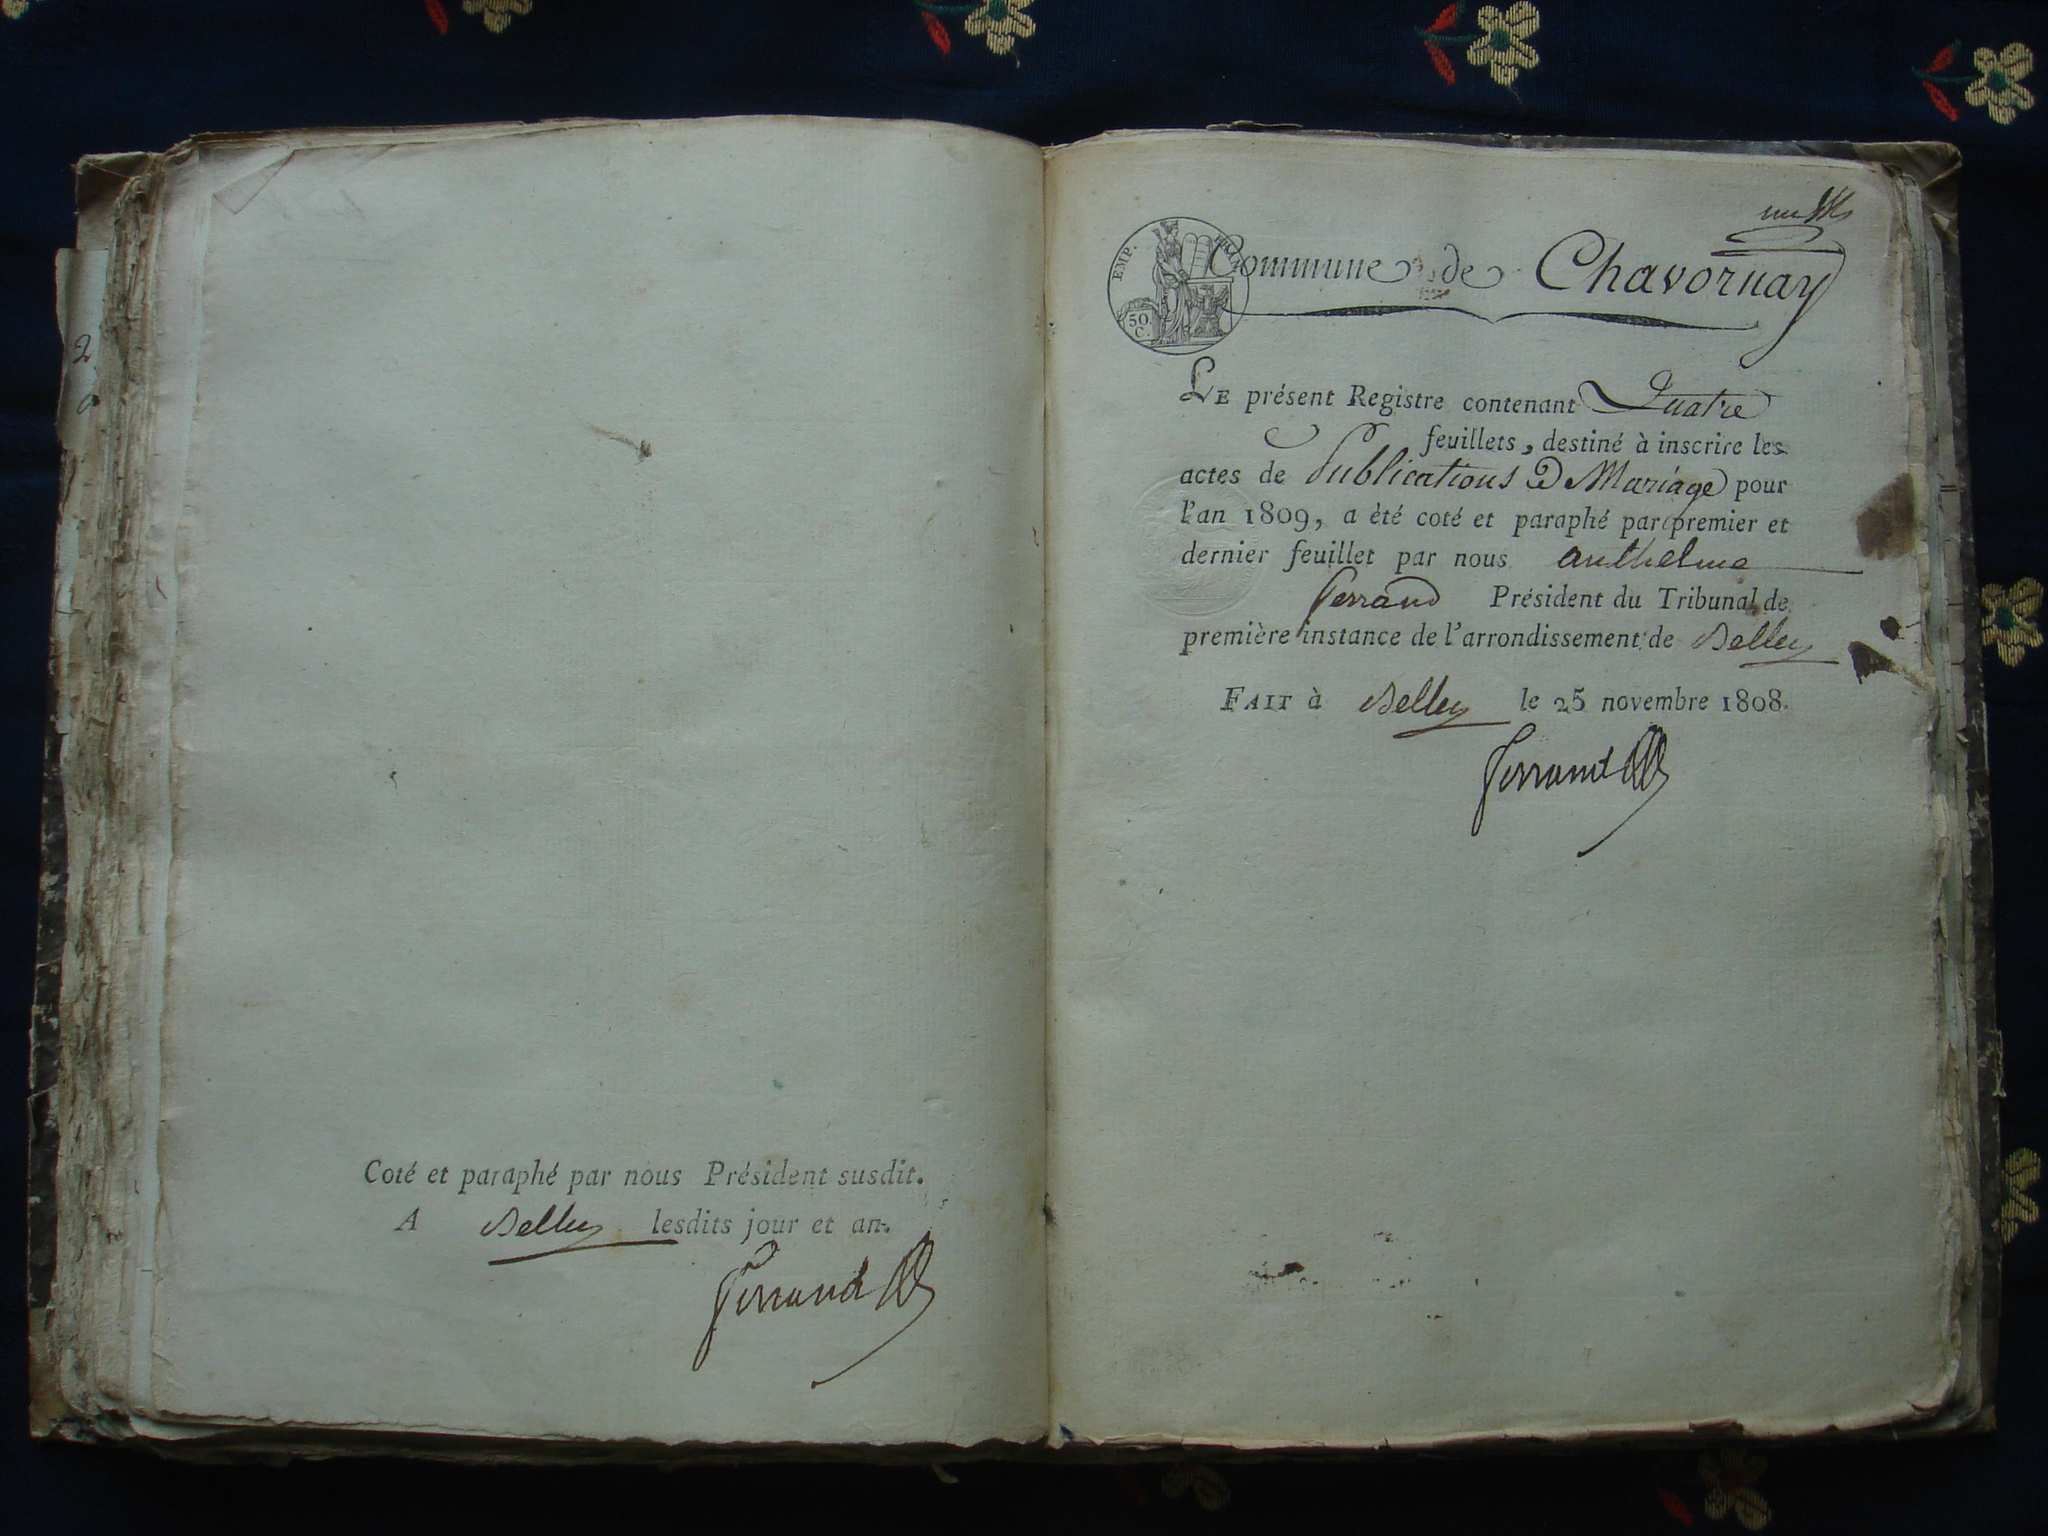 2
Coté et paraphé par nous Président susdit.
A Belley lesdits jour et an.
Ferrand
EMP. FRAN.
50.
C.
Commune de Chavornay
LE présent Registre contenant Quatre
feuillets, destiné à inscrire les
actes de Publications De Mariage pour
l'an 1809, a èté coté et paraphé par premier et
dernier feuillet par nous anthelme
Ferrand Président du Tribunal de
première instance de l'arrondissement de Belley
FAIT à Belley le 25 novembre 1808.
Ferrand